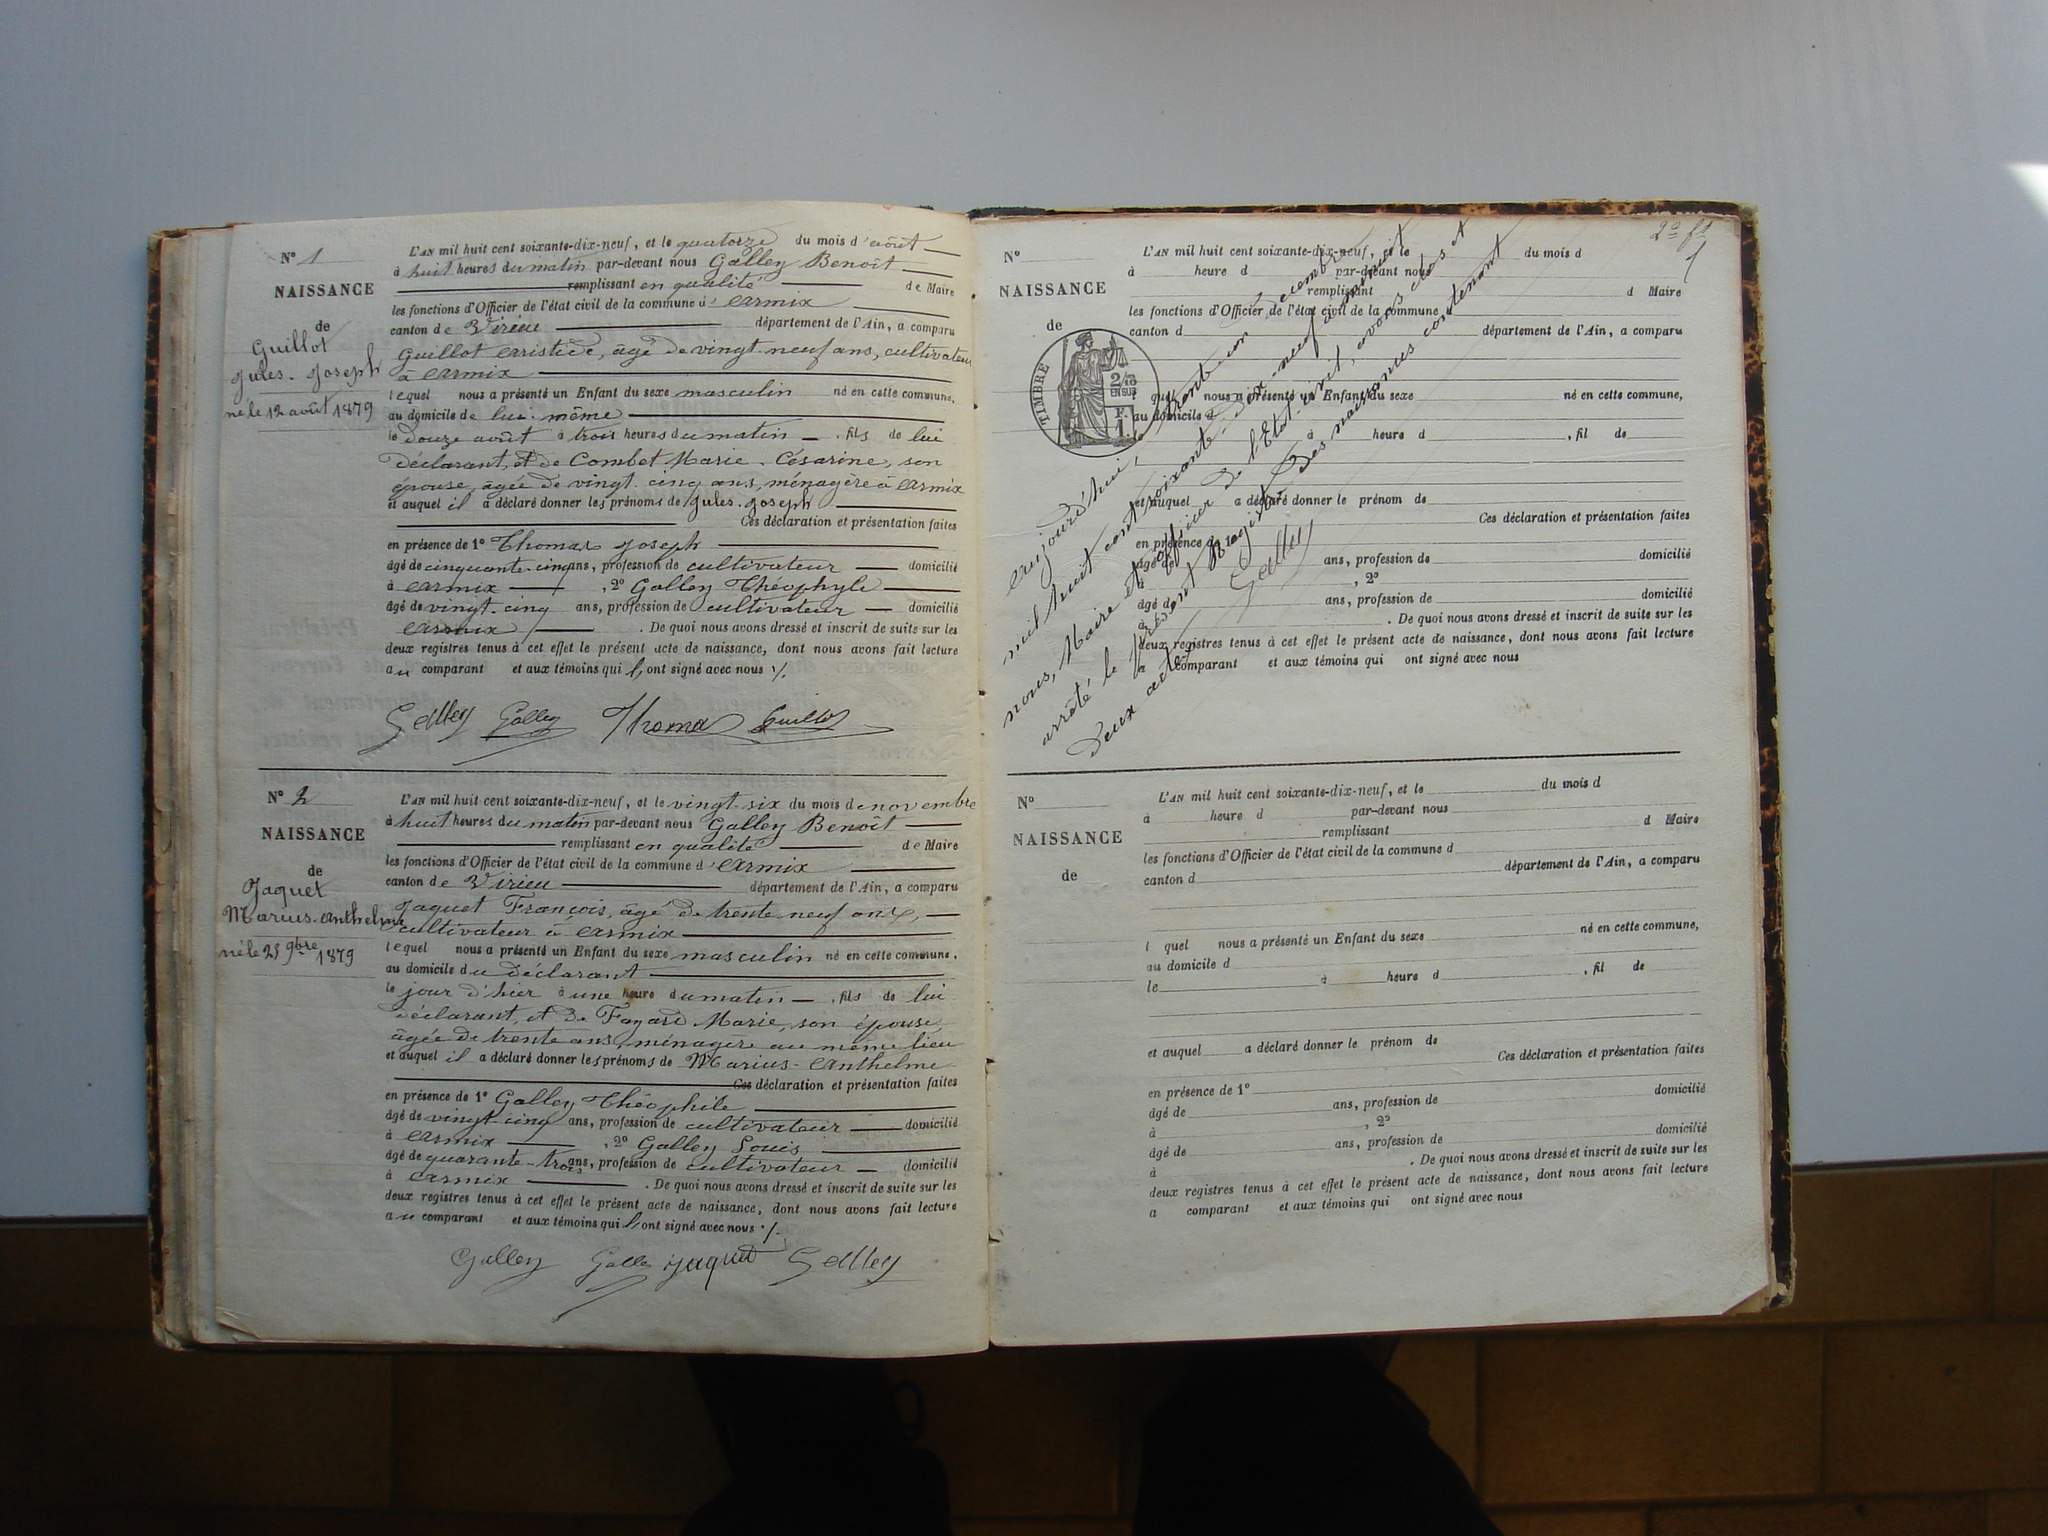 N° 1
NAISSANCE
de
Guillot
Jules-Joseph
né le 12 août 1879
L'AN mil huit cent soixante-dix-neuf, et le quatorze du mois d'août
à huit heures du matin par-devant nous Galley Benoît
remplissant en qualité de Maire
les fonctions d'Officier de l'état civil de la commune d'Armix
canton de Virieu département de l'Ain, a comparu
Guillot Aristide, âgé de vingt-neuf ans, cultivateur
à Armix
lequel nous a présenté un Enfant du sexe masculin né en cette commune,
au domicile de lui-même
le douze août à trois heures du matin, fils de lui
déclarant, et de Combet Marie-Césarine, son
épouse, âgée de vingt-cinq ans, ménagère à Armix
et auquel il a déclaré donner les prénoms de Jules-Joseph
Ces déclaration et présentation faites
en présence de 1° Thomas Joseph
âgé de cinquante-cinq ans, profession de cultivateur domicilié
à Armix, 2° Galley Théophyle
âgé de vingt-cinq ans, profession de cultivateur domicilié
Armix. De quoi nous avons dressé et inscrit de suite sur les
deux registres tenus à cet effet le présent acte de naissance, dont nous avons fait lecture
au comparant et aux témoins qui l'ont signé avec nous ./.
Galley Galley Thomas Guillot
N° 2
NAISSANCE
de
Jaquet
Marius-Anthelme
né le 25 9bre 1879
L'AN mil huit cent soixante-dix-neuf, et le vingt-six du mois de novembre
à huit heures du matin par-devant nous Galley Benoît
remplissant en qualité de Maire
les fonctions d'Officier de l'état civil de la commune d'Armix
canton de Virieu département de l'Ain, a comparu
Jaquet François, âgé de trente-neuf ans,
cultivateur à Armix
lequel nous a présenté un Enfant du sexe masculin né en cette commune,
au domicile du déclarant
le jour d'hier à une heure du matin, fils de lui
déclarant, et de Fayard Marie, son épouse,
âgée de trente ans, ménagère au même lieu
et auquel il a déclaré donner les prénoms de Marius-Anthelme
Ces déclaration et présentation faites
en présence de 1° Galley Théophile
âgé de vingt-cinq ans, profession de cultivateur domicilié
à Armix, 2° Galley Louis
âgé de quarante-trois ans, profession de cultivateur domicilié
à Armix. De quoi nous avons dressé et inscrit de suite sur les
deux registres tenus à cet effet le présent acte de naissance, dont nous avons fait lecture
au comparant et aux témoins qui l'ont signé avec nous ./.
Galley Galley Jaquet Galley
2e ft
1
N°
NAISSANCE
de
TIMBRE
2/10
EN SUS
F.
1
L'AN mil huit cent soixante-dix-neuf, et le du mois d
à heure d par-devant nous
remplissant d Maire
les fonctions d'Officier de l'état civil de la commune
canton d département de l'Ain, a comparu
quel nous a présenté un Enfant du sexe né en cette commune,
au domicile d
à heure d, fil de
et auquel a déclaré donner le prénom de
Ces déclaration et présentation faites
en présence de
âgé de ans, profession de domicilié
à, 2°
âgé de ans, profession de domicilié
à. De quoi nous avons dressé et inscrit de suite sur les
deux registres tenus à cet effet le présent acte de naissance, dont nous avons fait lecture
a comparant et aux témoins qui ont signé avec nous
Aujourd'hui, trente-un Décembre
mil huit cent soixante-dix-neuf à minuit
nous, Maire et officier de l'Etat-civil, avons clos et
arrêté le présent Registre des naissances contenant
deux actes.
Galley
N°
NAISSANCE
de
L'AN mil huit cent soixante-dix-neuf, et le du mois d
à heure d par-devant nous
remplissant d Maire
les fonctions d'Officier de l'état civil de la commune d
canton d département de l'Ain, a comparu
l quel nous a présenté un Enfant du sexe né en cette commune,
au domicile d
le à heure d, fil de
et auquel a déclaré donner le prénom de
Ces déclaration et présentation faites
en présence de 1°
âgé de ans, profession de domicilié
à, 2°
âgé de ans, profession de domicilié
à. De quoi nous avons dressé et inscrit de suite sur les
deux registres tenus à cet effet le présent acte de naissance, dont nous avons fait lecture
a comparant et aux témoins qui ont signé avec nous